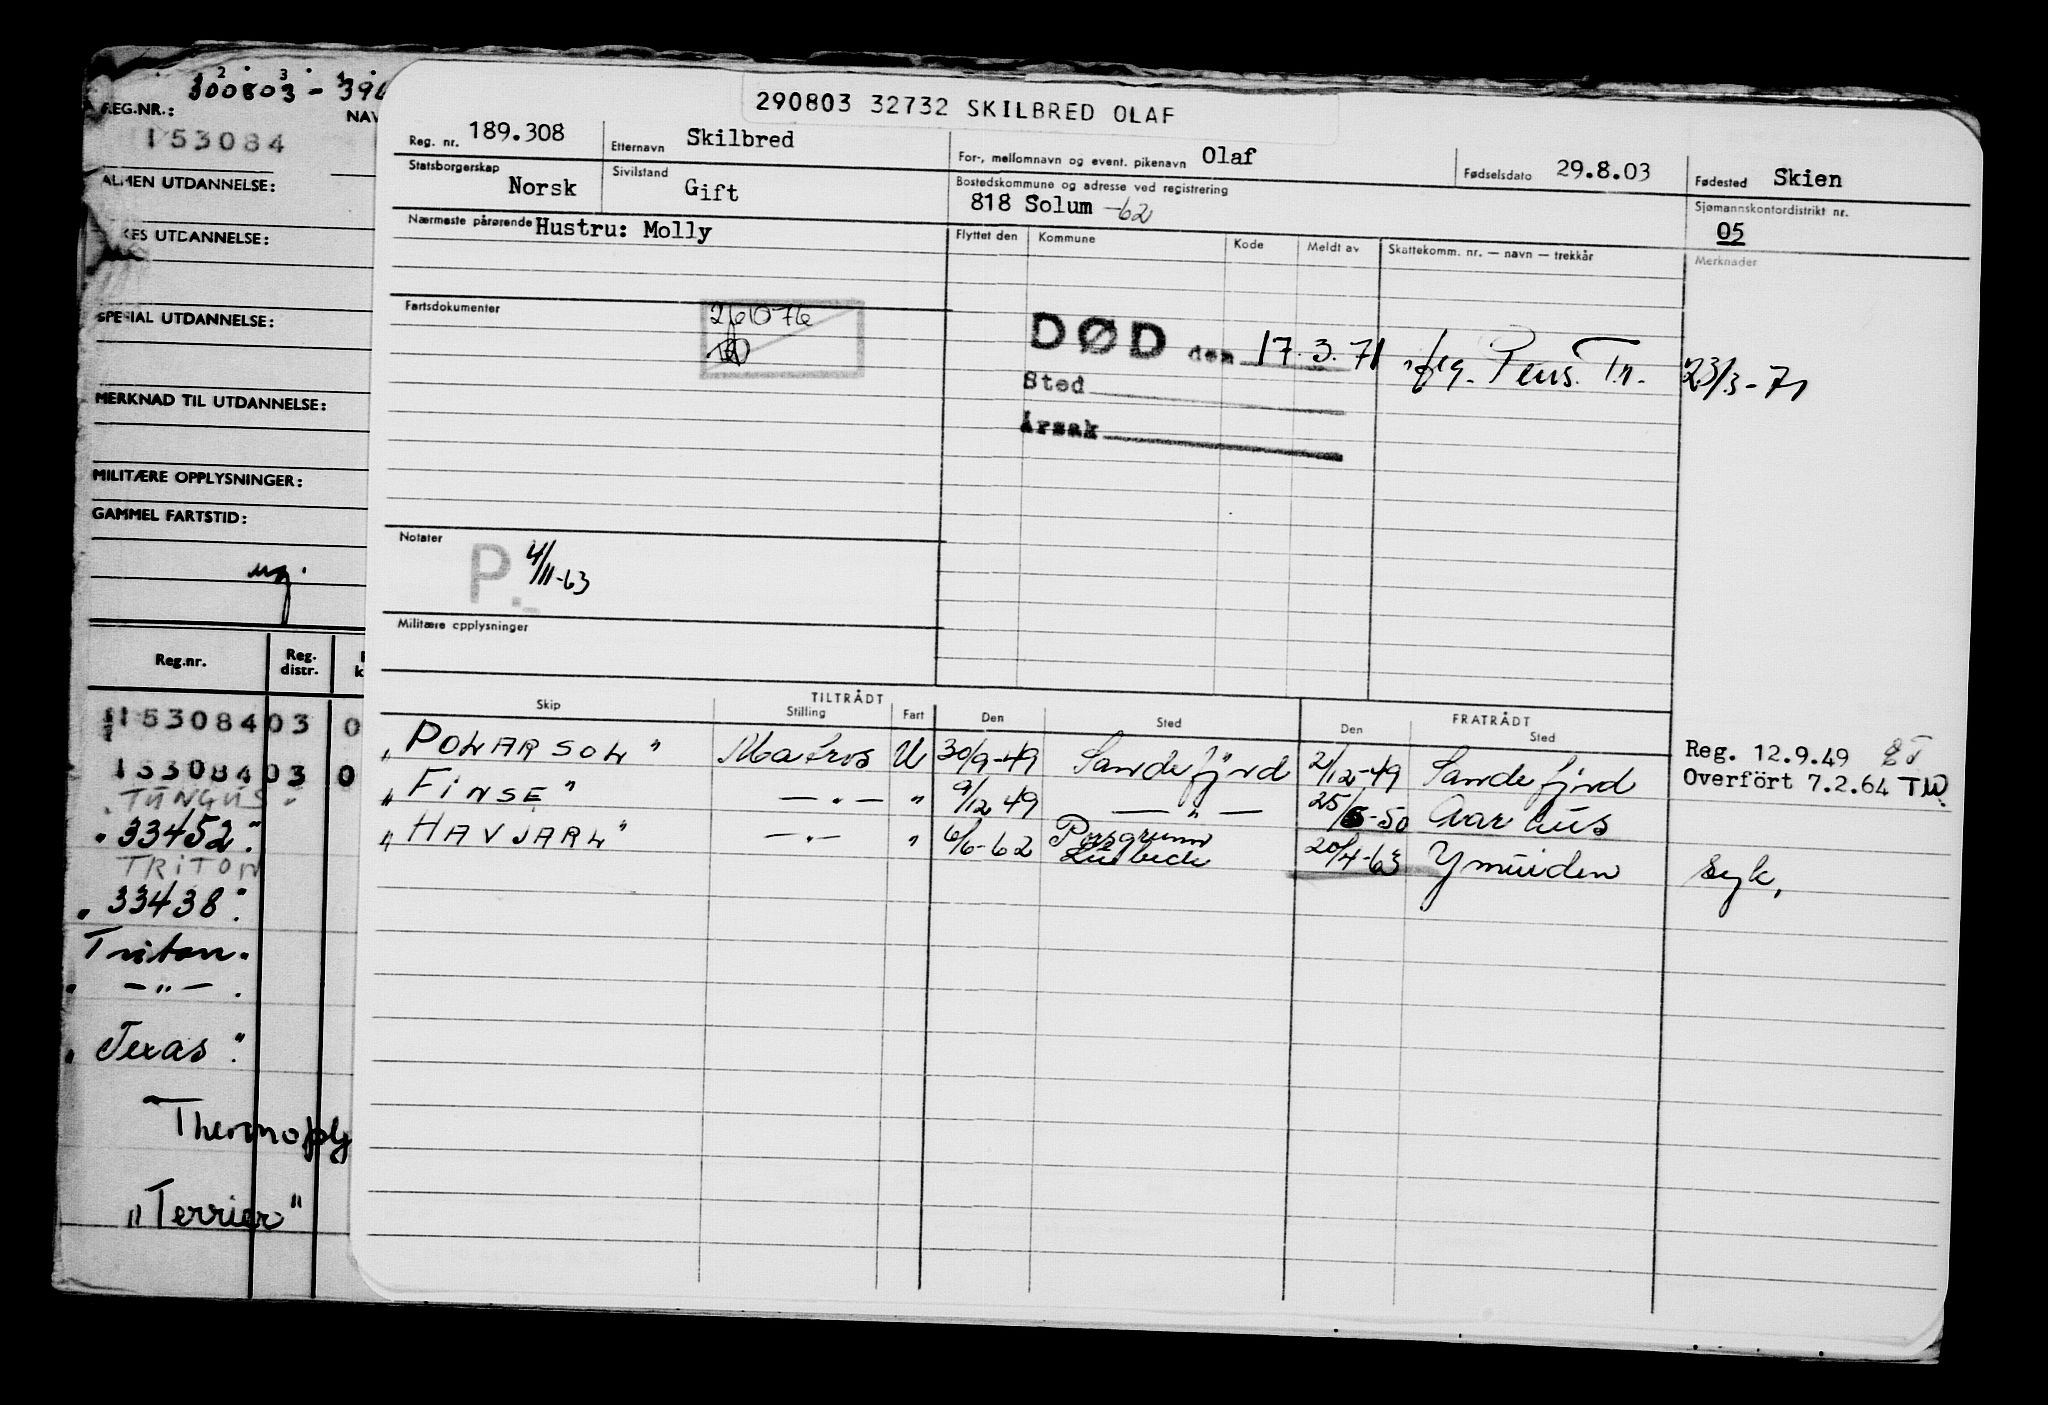 300803 - 390
REG.NR.:
NAV
153084
ALMEN UTDANNELSE:
UTDANNELSE:
SPESIAL UTDANNELSE:
MERKNAD TIL UTDANNELSE:
MILITÆRE OPPLYSNINGER:
GAMMEL FARTSTID:
Reg.nr.
Reg. distr.
15308403 0
15308403 0
TUNGUS
"33452"
TRITON
"33438"
Triton"
" — " — "
"Texas"
Thermoply
"Terrier"
290803 32732 SKILBRED OLAF
Reg. nr. 189.308
Etternavn Skilbred
For-, mellomnavn og event. pikenavn Olaf
Fødselsdato 29.8.03
Fødested Skien
Statsborgerskap Norsk
Sivilstand Gift
Bostedskommune og adresse ved registrering
818 Solum -62
Sjømannskontordistrikt nr.
05
Nærmeste pårørende Hustru: Molly
Flyttet den Kommune Kode Meldt av Skattekomm. nr. — navn — trekkår Merknader
Fartsdokumenter
26076
DØD den 17.3.71 Pens. Tr. 23/3-71
Sted
Årsak
Notater
P. 4/11-63
Militære opplysninger
TILTRÅDT
FRATRÅDT
Skip Stilling Fart Den Sted Den Sted
"POLARSOL" Matros U 30/9-49 Sandefjord 2/12-49 Sandefjord
Reg. 12.9.49
Overfört 7.2.64 TW
"FINSE" — " — " 9/12 49 — " — 25/5-50 Aarhus
"HAVJARL" — " — " 6/6-62 Porsgrunn 20/4-63 Ymuiden syk,